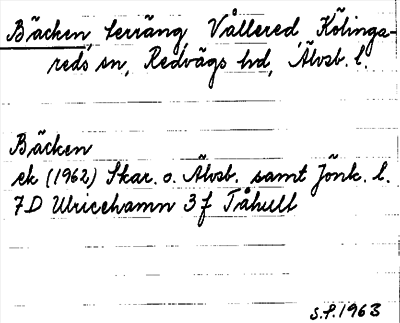 Bäcken, terräng, Vållered, Kölinga-
reds sn, Redvägs hd, Älvsb. l.
Bäcken
ek (1962) Skar. o. Älvsb. samt Jönk. l.
7D Ulricehamn 3f Tåhult
S.P. 1963